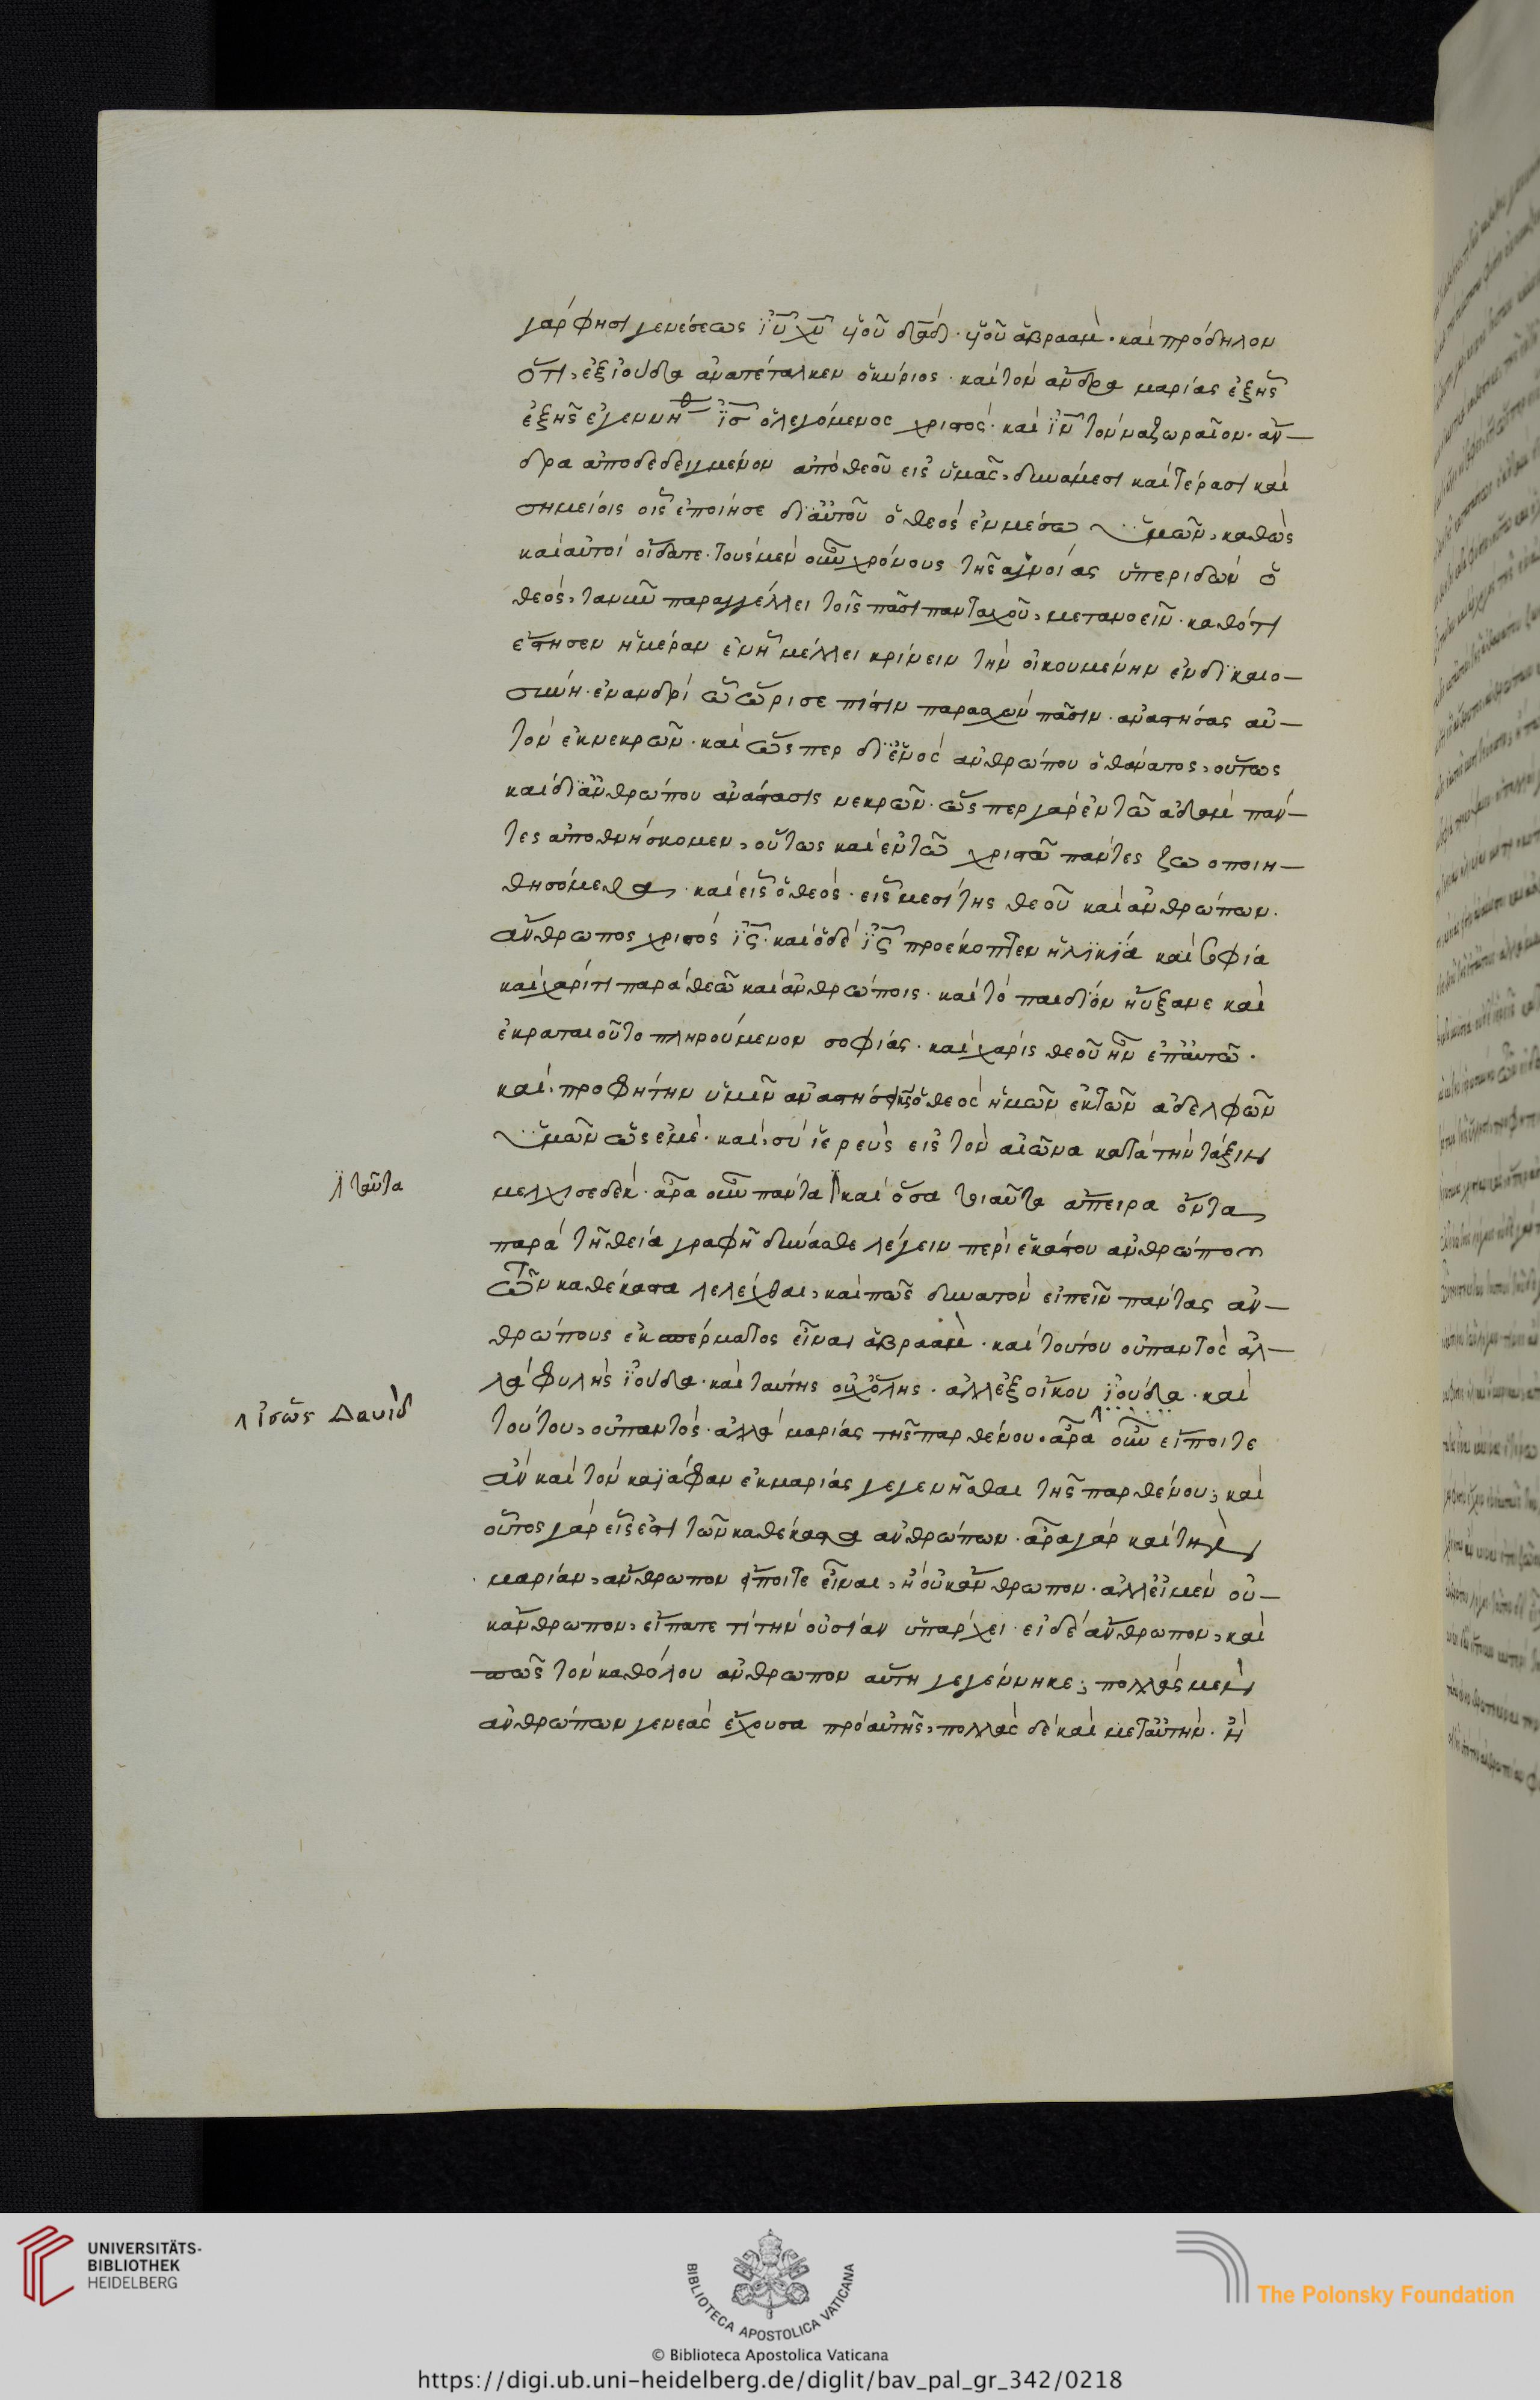 γάρ φησι γενέσεως ἰ̅υ̅ χ̅υ̅ υἱοῦ δα̅δ̅· υἱοῦ ἀβραάμ· καὶ πρόδηλον
ὅτι, ἐξ ἰούδα ἀνατέταλκεν ὁ κύριος· καὶ τὸν ἄνδρα μαρίας ἐξ ἧς
ἐξ ἧς ἐγεννήθ ἰ̅σ̅ ὁ λεγόμενος χριστός· καὶ ἰ̅ν̅ τὸν ναζωραῖον· ἄν–
δρα ἀποδεδειγμένον ἀπὸ θεοῦ εἰς ὑμᾶς, δυνάμεσι καὶ τέρασι καὶ
σημείοις οἷς ἐποίησε δι' αὐτοῦ ὁ θεὸς ἐν μέσω ὑμῶν, καθὼς
καὶ αὐτοὶ οἴδατε· τοὺς μὲν οὖν χρόνους τῆς ἀγνοίας ὑπεριδὼν ὁ
θεός, τανῦν παραγγέλλει τοῖς πᾶσι πανταχοῦ, μετανοεῖν· καθότι
ἔστησεν ἡμέραν ἐν ἧ μέλλει κρίνειν τὴν οἰκουμένην ἐν δικαιο–
σύνη· ἐν ἀνδρὶ ὧ ὥρισε πίστιν παρασχὼν πᾶσιν· ἀναστήσας αὐ–
τὸν ἐκ νεκρῶν· καὶ ὥσπερ δι' ἑνὸς ἀνθρώπου ὁ θάνατος, οὕτως
καὶ δι' ἀνθρώπου ἀνάστασις νεκρῶν· ὥσπερ γὰρ ἐν τῶ ἀδὰμ πάν–
τες ἀποθνήσκομεν, οὕτως καὶ ἐν τῶ χριστῶ πάντες ζωοποιη–
θησόμεθα· καὶ εἷς ὁ θεός· εἷς μεσίτης θεοῦ καὶ ἀνθρώπων·
ἄνθρωπος χριστὸς ἰ̅ς̅· καὶ ὁ δὲ ἰ̅ς̅ προέκοπτεν ἡλικία καὶ σοφία
καὶ χάριτι παρὰ θεῶ καὶ ἀνθρώποις· καὶ τὸ παιδίον ηὔξανε καὶ
ἐκραταιοῦτο πληρούμενον σοφίας· καὶ χάρις θεοῦ ἦν ἐπ' αὐτῶ·
καὶ, προφήτην ὑμῖν ἀναστήσει κς ὁ θεὸς ἡμῶν ἐκ τῶν ἀδελφῶν
ὑμῶν ὡς ἐμέ· καὶ, σὺ ἱερεὺς εἰς τὸν αἰῶνα κατὰ τὴν τάξιν
μελχισεδέκ· ἆρα οὖν πάντα καὶ ὅσα τοιαῦτα ἄπειρα ὄντα
ταῦτα
παρὰ τῆ θεία γραφῆ δύνασθε λέγειν περὶ ἑκάστου ἀνθρώπου
τῶν καθέκαστα λελέχθαι, καὶ πῶς δυνατὸν εἰπεῖν πάντας ἀν–
θρώπους ἐκ σπέρματος εἶναι ἀβραάμ· καὶ τούτου οὐ παντὸς ἀλ–
λὰ φυλῆς ἰούδα· καὶ ταύτης οὐχ ὅλης· ἀλλ' ἐξ οἴκου ἰούδα· καὶ
ἴσως Δαυὶδ
τούτου, οὐ παντός· ἀλλὰ μαρίας τῆς παρθένου· ἆρα οὖν εἴποιτε
ἂν καὶ τὸν καϊάφαν ἐκ μαρίας γεγενῆσθαι τῆς παρθένου; καὶ
οὗτος γὰρ εἷς ἐστι τῶν καθέκαστα ἀνθρώπων· ἆρα γὰρ καὶ τὴν
μαρίαν, ἄνθρωπον εἴποιτε εἶναι, ἢ οὐκ ἄνθρωπον· ἀλλ' εἰ μὲν οὐ–
κ ἄνθρωπον, εἴπατε τί τὴν οὐσίαν ὑπάρχει· εἰ δὲ ἄνθρωπον, καὶ
πῶς τὸν καθόλου ἄνθρωπον αὕτη γεγέννηκε; πολλὰς μὲν
ἀνθρώπων γενεὰς ἔχουσα πρὸ αὐτῆς, πολλὰς δὲ καὶ μετ' αὐτήν· ἢ
UNIVERSITÄTS-
BIBLIOTHEK
HEIDELBERG
BIBLIOTECA APOSTOLICA VATICANA
The Polonsky Foundation
© Biblioteca Apostolica Vaticana
https://digi.ub.uni-heidelberg.de/diglit/bav_pal_gr_342/0218